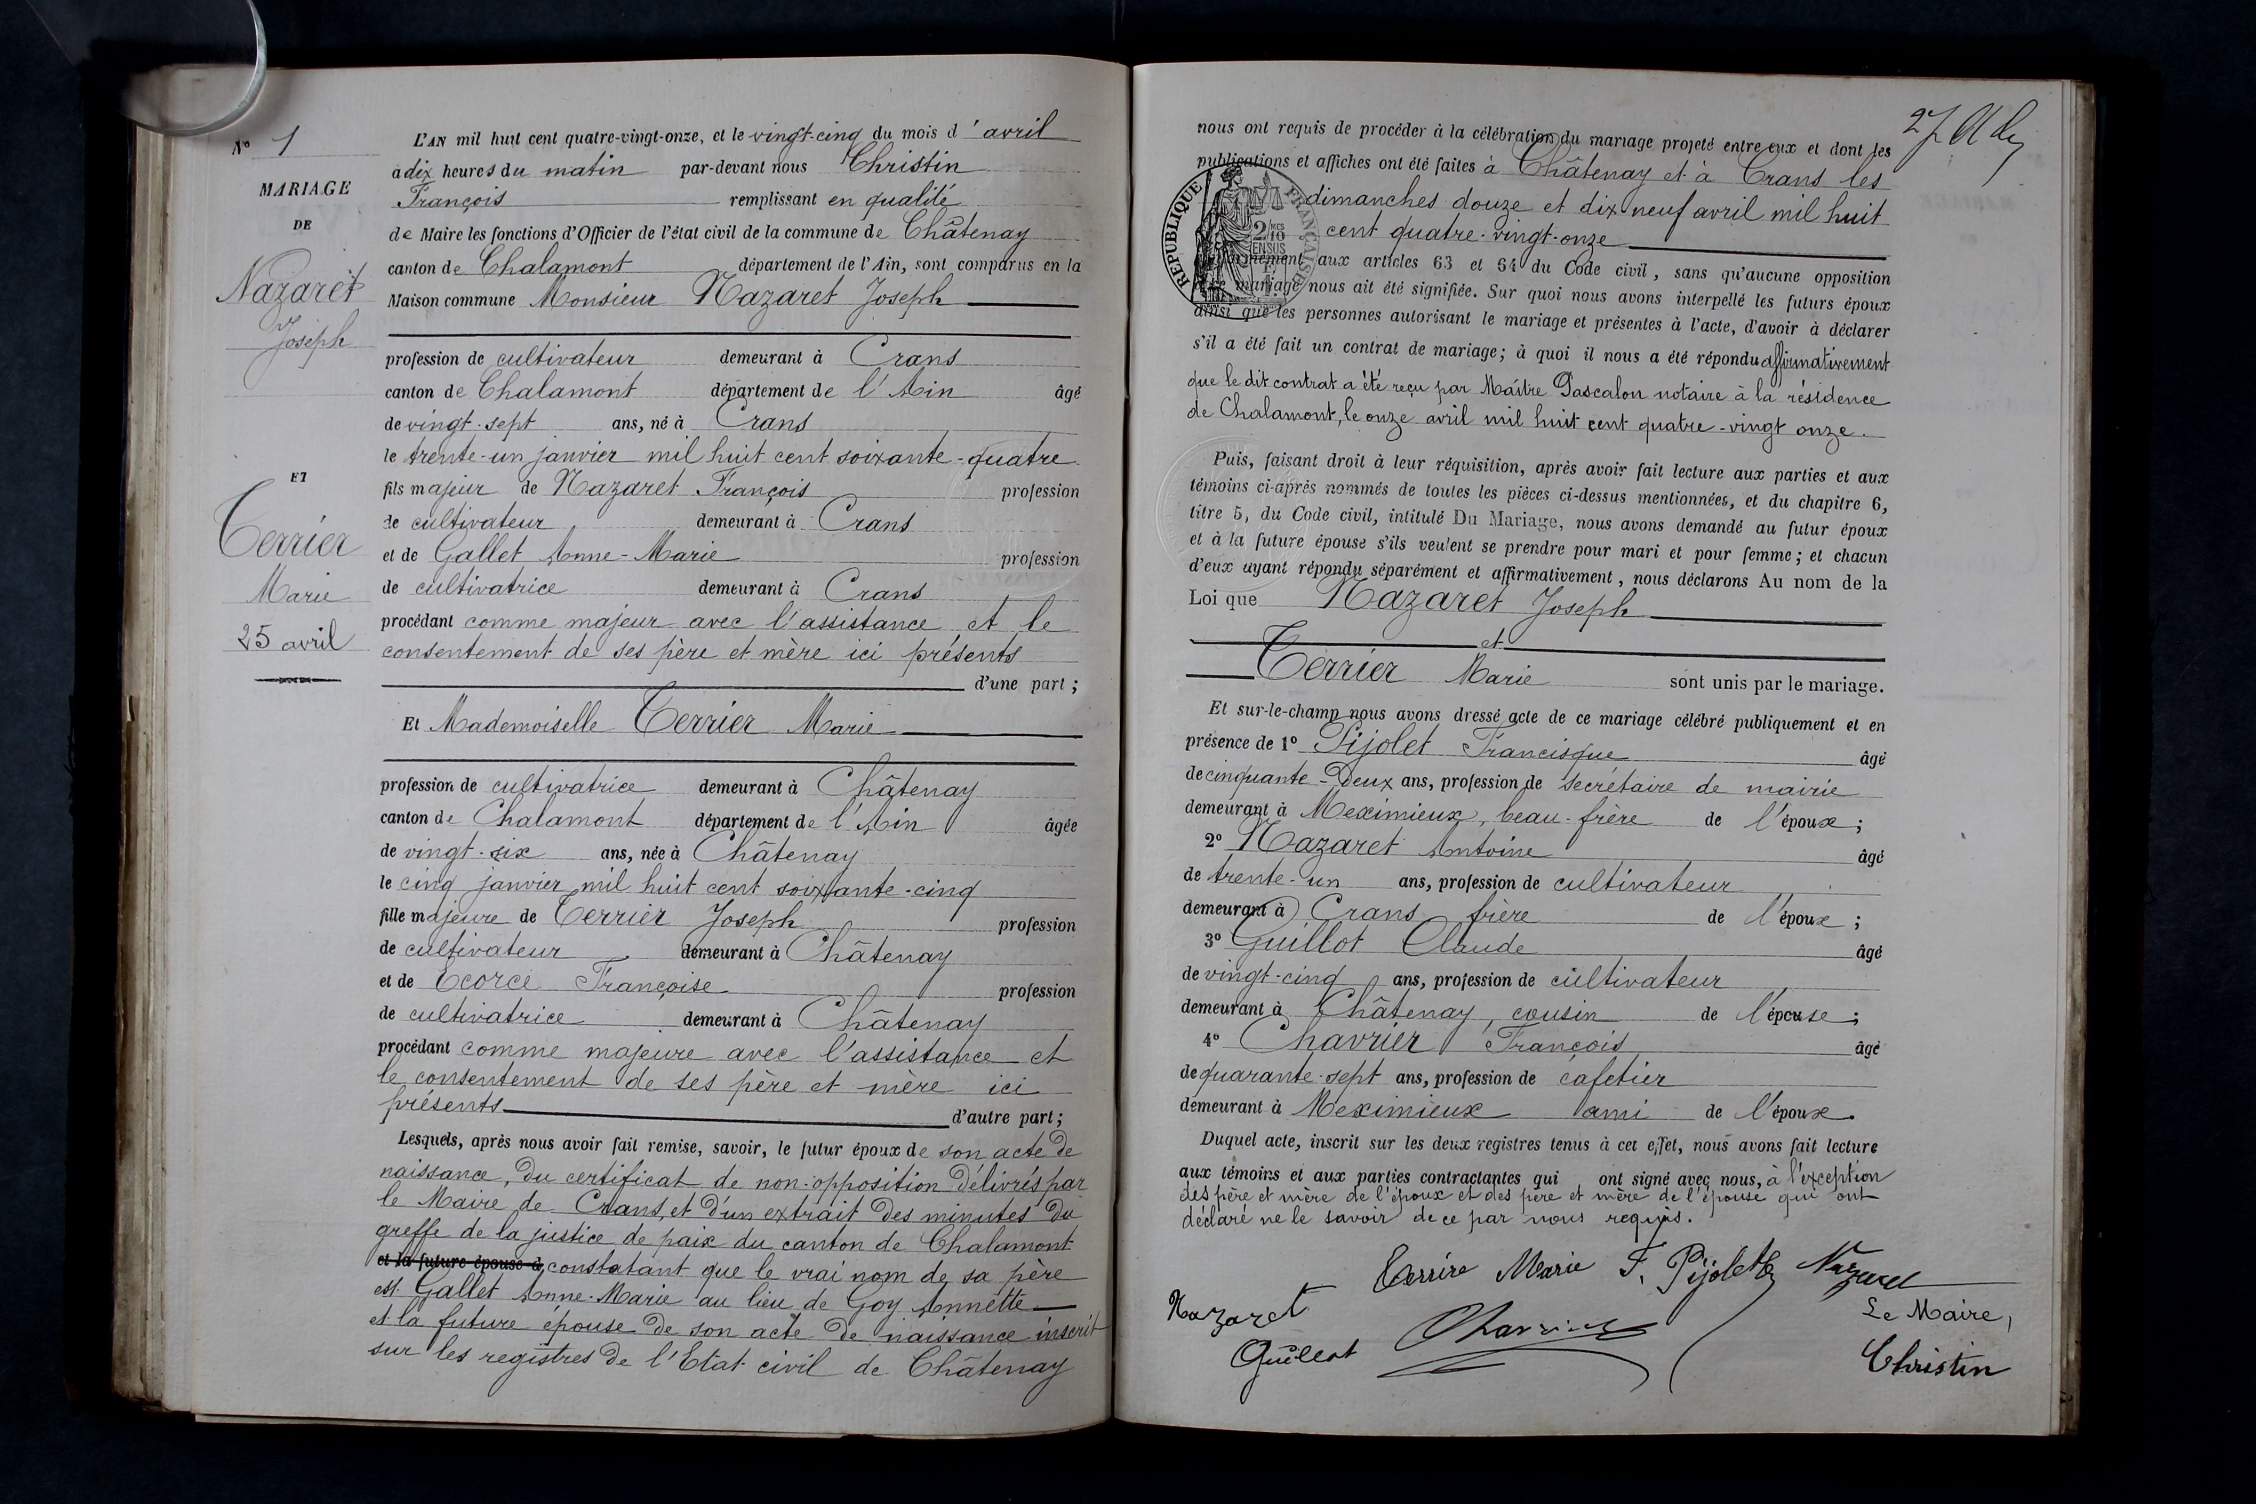 N° 1
MARIAGE
DE
Nazaret
Joseph
ET
Terrier
Marie
25 avril
L'AN mil huit cent quatre-vingt-onze, et le vingt-cinq du mois d'avril
à dix heures du matin par-devant nous Christin
François remplissant en qualité
de Maire les fonctions d'Officier de l'état civil de la commune de Châtenay
canton de Chalamont département de l'Ain, sont comparus en la
Maison commune Monsieur Nazaret Joseph
profession de cultivateur demeurant à Crans
canton de Chalamont département de l'Ain âgé
de vingt-sept ans, né à Crans
le trente-un janvier mil huit cent soixante-quatre
fils majeur de Nazaret François profession
de cultivateur demeurant à Crans
et de Gallet Anne-Marie profession
de cultivatrice demeurant à Crans
procédant comme majeur avec l'assistance et le
consentement de ses père et mère ici présents
d'une part ;
Et Mademoiselle Terrier Marie
profession de cultivatrice demeurant à Châtenay
canton de Chalamont département de l'Ain âgée
de vingt-six ans, née à Châtenay
le cinq janvier mil huit cent soixante-cinq
fille majeure de Terrier Joseph profession
de cultivateur demeurant à Châtenay
et de Ecorce Françoise profession
de cultivatrice demeurant à Châtenay
procédant comme majeure avec l'assistance et
le consentement de ses père et mère ici
présents d'autre part ;
Lesquels, après nous avoir fait remise, savoir, le futur époux de son acte de
naissance, du certificat de non-opposition délivrés par
le Maire de Crans, et d'un extrait des minutes du
greffe de la justice de paix du canton de Chalamont
et la future épouse d constatant que le vrai nom de sa père
est Gallet Anne-Marie au lieu de Goy Annette
et la future épouse de son acte de naissance inscrit
sur les registres de l'Etat civil de Châtenay
nous ont requis de procéder à la célébration du mariage projeté entre eux et dont les
publications et affiches ont été faites à Châtenay et à Crans les
dimanches douze et dix neuf avril mil huit
cent quatre-vingt-onze
RÉPUBLIQUE FRANÇAISE
2/10 EN SUS
aux articles 63 et 64 du Code civil, sans qu'aucune opposition
mariage nous ait été signifiée. Sur quoi nous avons interpellé les futurs époux
ainsi que les personnes autorisant le mariage et présentes à l'acte, d'avoir à déclarer
s'il a été fait un contrat de mariage; à quoi il nous a été répondu affirmativement
que le dit contrat a été reçu par Maître Pascalon notaire à la résidence
de Chalamont, le onze avril mil huit cent quatre-vingt onze.
Puis, faisant droit à leur réquisition, après avoir fait lecture aux parties et aux
témoins ci-après nommés de toutes les pièces ci-dessus mentionnées, et du chapitre 6,
titre 5, du Code civil, intitulé Du Mariage, nous avons demandé au futur époux
et à la future épouse s'ils veulent se prendre pour mari et pour femme ; et chacun
d'eux ayant répondu séparément et affirmativement, nous déclarons Au nom de la
Loi que Nazaret Joseph
et
Terrier Marie sont unis par le mariage.
Et sur-le-champ nous avons dressé acte de ce mariage célébré publiquement et en
présence de 1° Pijolet Francisque âgé
de cinquante-deux ans, profession de secrétaire de mairie
demeurant à Meximieux, beau-frère de l'époux ;
2° Nazaret Antoine âgé
de trente-un ans, profession de cultivateur
demeurant à Crans frère de l'époux ;
3° Guillot Claude âgé
de vingt-cinq ans, profession de cultivateur
demeurant à Châtenay, cousin de l'épouse ;
4° Chavrier François âgé
de quarante-sept ans, profession de cafetier
demeurant à Meximieux ami de l'époux.
Duquel acte, inscrit sur les deux registres tenus à cet effet, nous avons fait lecture
aux témoins et aux parties contractantes qui ont signé avec nous, à l'exception
des père et mère de l'époux et des père et mère de l'épouse qui ont
déclaré ne le savoir de ce par nous requis.
Terrire Marie F. Pijolet Nazaret
Nazaret
Guillot Chavrier
Le Maire,
Christin